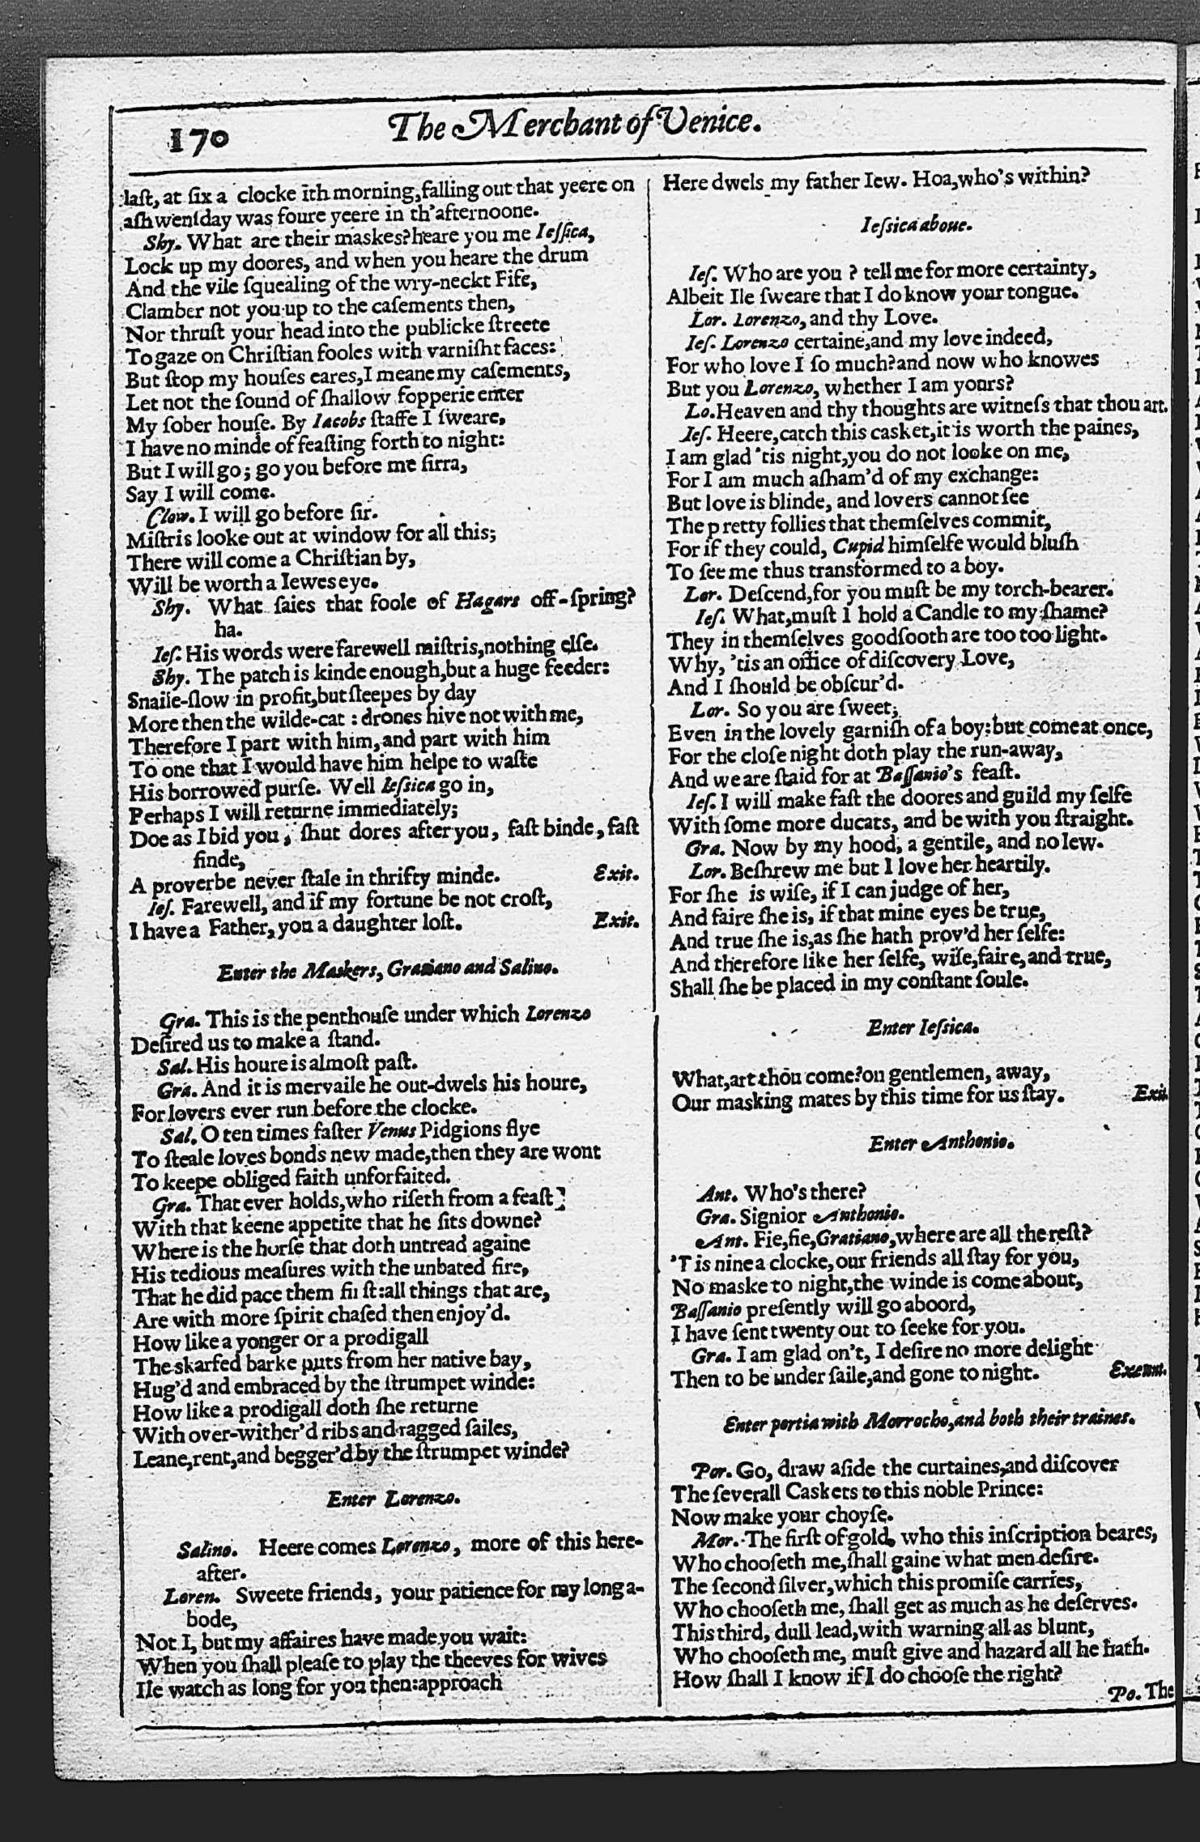 170
The Merchant of Venice.
laſt, at ſix a clocke ith morning, falling out that yeere on
aſhwenſday was foure yeere in th'afternoone.
Shy. What are their maskes? heare you me Ieſſica,
Lock up my doores, and when you heare the drum
And the vile ſquealing of the wry-neckt Fife,
Clamber not you up to the caſements then,
Nor thruſt your head into the publicke ſtreete
To gaze on Chriſtian fooles with varniſht faces:
But ſtop my houſes eares, I meane my caſements,
Let not the ſound of ſhallow fopperie enter
My ſober houſe. By Iacobs ſtaffe I ſweare,
I have no minde of feaſting forth to night:
But I will go; go you before me ſirra,
Say I will come.
Clow. I will go before ſir.
Miſtris looke out at window for all this;
There will come a Chriſtian by,
Will be worth a Iewes eye.
Shy. What ſaies that foole of Hagars off-ſpring?
ha.
Ieſ. His words were farewell miſtris, nothing elſe.
Shy. The patch is kinde enough, but a huge feeder:
Snaile-ſlow in profit, but ſleepes by day
More then the wilde-cat: drones hive not with me,
Therefore I part with him, and part with him
To one that I would have him helpe to waſte
His borrowed purſe. Well Ieſsica go in,
Perhaps I will returne immediately;
Doe as I bid you, ſhut dores after you, faſt binde, faſt
finde,
A proverbe never ſtale in thrifty minde. Exit.
Ieſ. Farewell, and if my fortune be not croſt,
I have a Father, you a daughter loſt. Exit.
Enter the Maskers, Gratiano and Salino.
Gra. This is the penthouſe under which Lorenzo
Deſired us to make a ſtand.
Sal. His houre is almoſt paſt.
Gra. And it is mervaile he out-dwels his houre,
For lovers ever run before the clocke.
Sal. O ten times faſter Venus Pidgions flye
To ſteale loves bonds new made, then they are wont
To keepe obliged faith unforfaited.
Gra. That ever holds, who riſeth from a feaſt
With that keene appetite that he ſits downe?
Where is the horſe that doth untread againe
His tedious meaſures with the unbated fire,
That he did pace them firſt: all things that are,
Are with more ſpirit chaſed then enjoy'd.
How like a yonger or a prodigall
The skarfed barke puts from her native bay,
Hug'd and embraced by the ſtrumpet winde:
How like a prodigall doth ſhe returne
With over-wither'd ribs and ragged ſailes,
Leane, rent, and begger'd by the ſtrumpet winde?
Enter Lorenzo.
Salino. Heere comes Lorenzo, more of this here-
after.
Loren. Sweete friends, your patience for my long a-
bode,
Not I, but my affaires have made you wait:
When you ſhall pleaſe to play the theeves for wives
Ile watch as long for you then: approach
Here dwels my father Iew. Hoa, who's within?
Ieſsica above.
Ieſ. Who are you? tell me for more certainty,
Albeit Ile ſweare that I do know your tongue.
Lor. Lorenzo, and thy Love.
Ieſ. Lorenzo certaine, and my love indeed,
For who love I ſo much? and now who knowes
But you Lorenzo, whether I am yours?
Lo. Heaven and thy thoughts are witneſs that thou art.
Ieſ. Heere, catch this casket, it is worth the paines,
I am glad 'tis night, you do not looke on me,
For I am much aſham'd of my exchange:
But love is blinde, and lovers cannot ſee
The pretty follies that themſelves commit,
For if they could, Cupid himſelfe would bluſh
To ſee me thus transformed to a boy.
Lor. Deſcend, for you muſt be my torch-bearer.
Ieſ. What, muſt I hold a Candle to my ſhame?
They in themſelves goodſooth are too too light.
Why, 'tis an office of diſcovery Love,
And I ſhould be obſcur'd.
Lor. So you are ſweet,
Even in the lovely garniſh of a boy: but come at once,
For the cloſe night doth play the run-away,
And we are ſtaid for at Baſſanio's feaſt.
Ieſ. I will make faſt the doores and guild my ſelfe
With ſome more ducats, and be with you ſtraight.
Gra. Now by my hood, a gentile, and no Iew.
Lor. Beſhrew me but I love her heartily.
For ſhe is wiſe, if I can judge of her,
And faire ſhe is, if that mine eyes be true,
And true ſhe is, as ſhe hath prov'd her ſelfe:
And therefore like her ſelfe, wiſe, faire, and true,
Shall ſhe be placed in my conſtant ſoule.
Enter Ieſsica.
What, art thou come? on gentlemen, away,
Our masking mates by this time for us ſtay. Exit.
Enter Anthonio.
Ant. Who's there?
Gra. Signior Anthonio.
Ant. Fie, fie, Gratiano, where are all the reſt?
'Tis nine a clocke, our friends all ſtay for you,
No maske to night, the winde is come about,
Baſſanio preſently will go aboord,
I have ſent twenty out to ſeeke for you.
Gra. I am glad on't, I deſire no more delight
Then to be under ſaile, and gone to night. Exeunt.
Enter portia with Morrocho, and both their traines.
Por. Go, draw aſide the curtaines, and diſcover
The ſeverall Caskets to this noble Prince:
Now make your choyſe.
Mor. The firſt of gold, who this inſcription beares,
Who chooſeth me, ſhall gaine what men deſire.
The ſecond ſilver, which this promiſe carries,
Who chooſeth me, ſhall get as much as he deſerves.
This third, dull lead, with warning all as blunt,
Who chooſeth me, muſt give and hazard all he hath.
How ſhall I know if I do chooſe the right?
Po. The